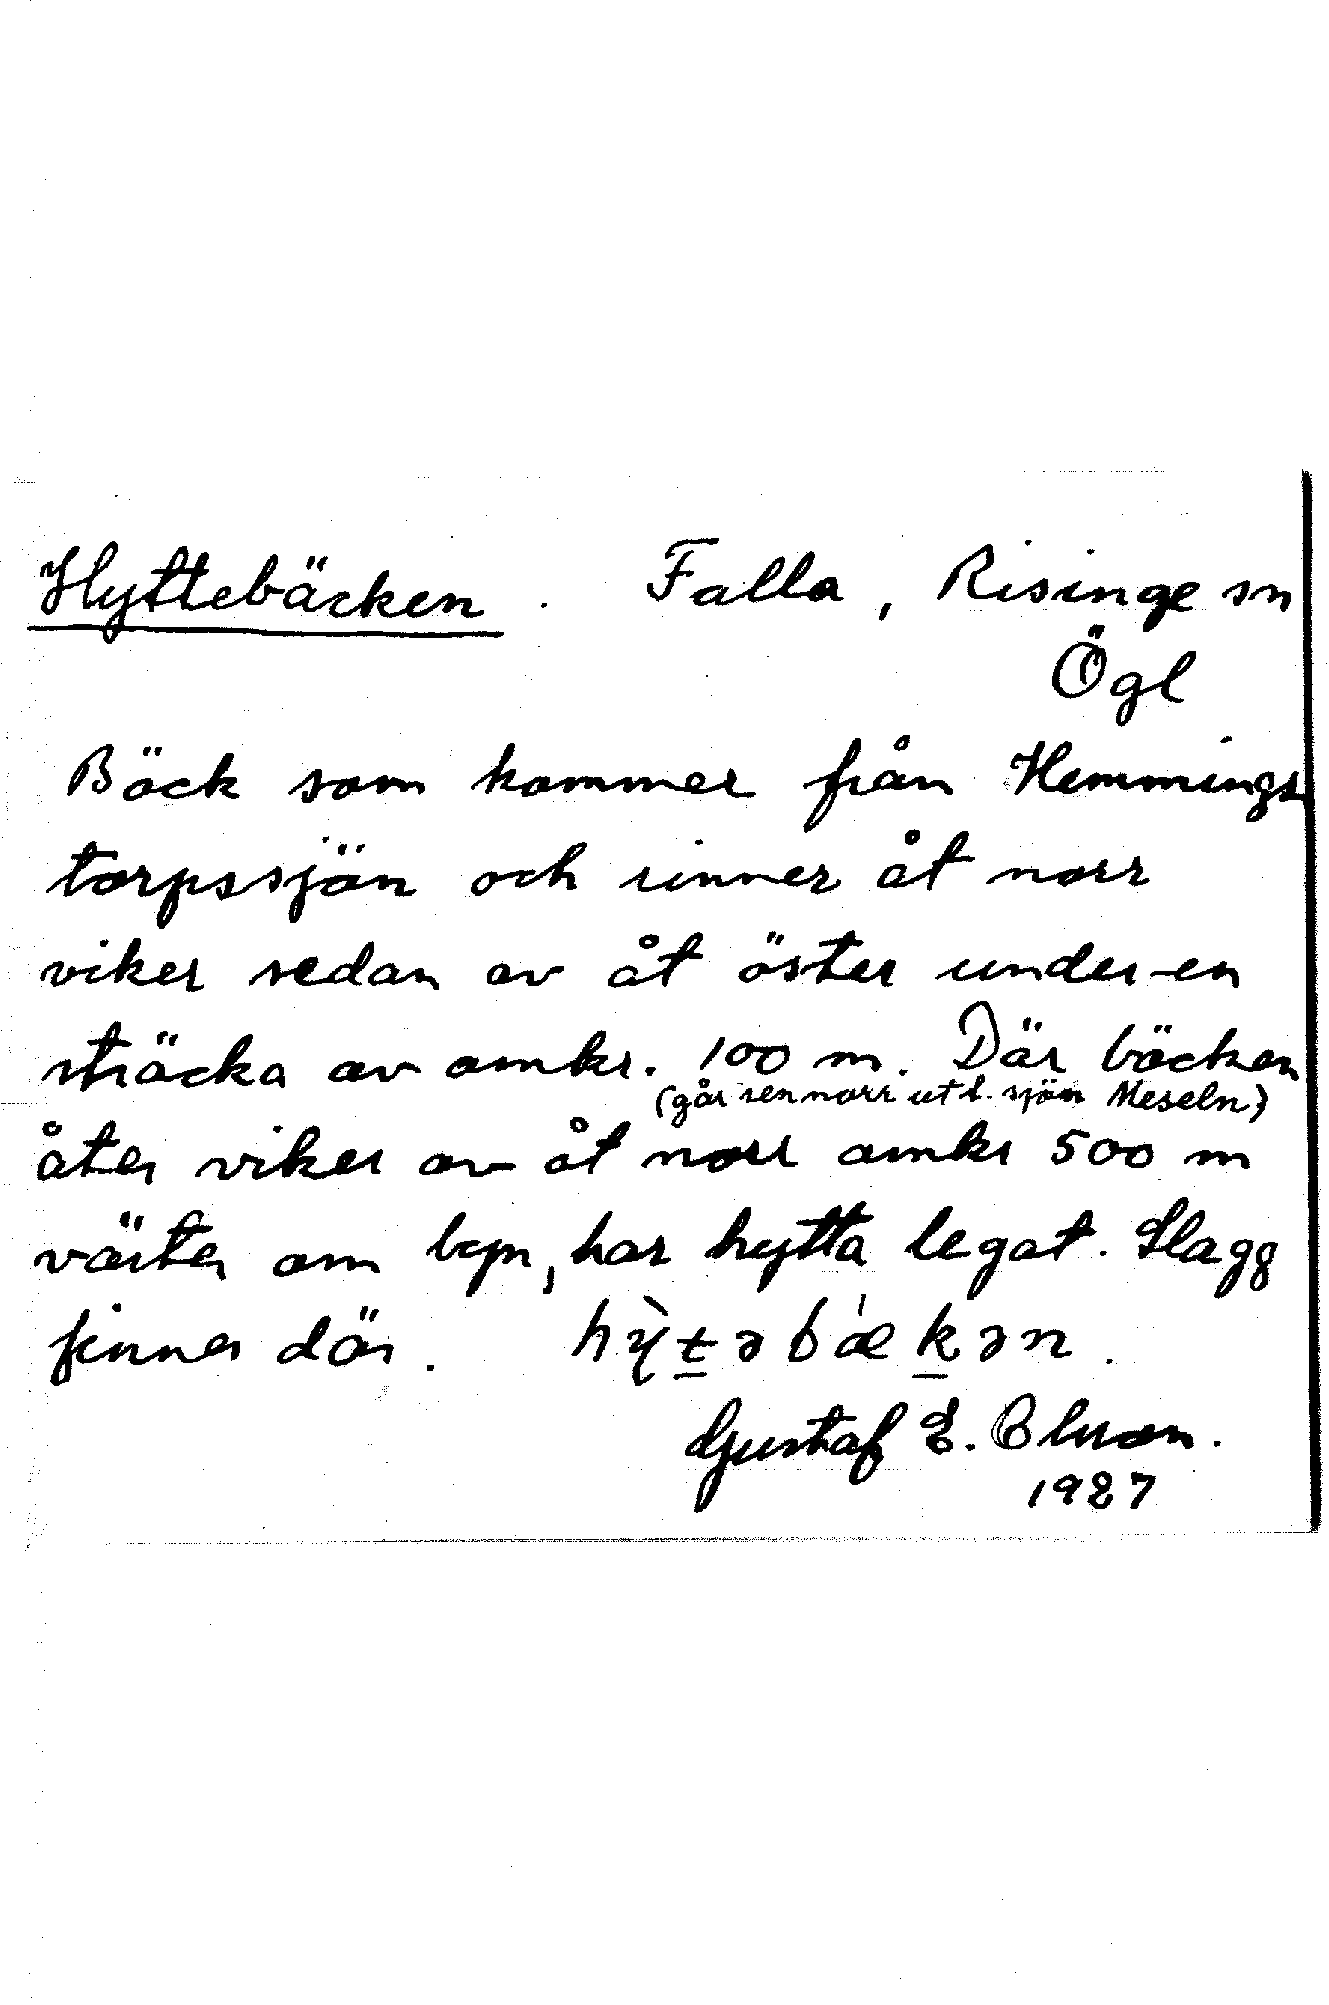 Hyttebäcken. Falla, Risinge sn
Ögl
Bäck som kommer från Hemmings
torpssjön och rinner åt norr
viker sedan av åt öster under en
sträcka av omkr. 100 m. Där bäcken
(går sen norr ut t. sjön Meseln)
åter viker av åt norr omkr 500 m
väster om byn, har hytta legat. Slagg
finnes där. hỳt̲əbǽk̲ən.
Gustaf E. Olsson.
1927